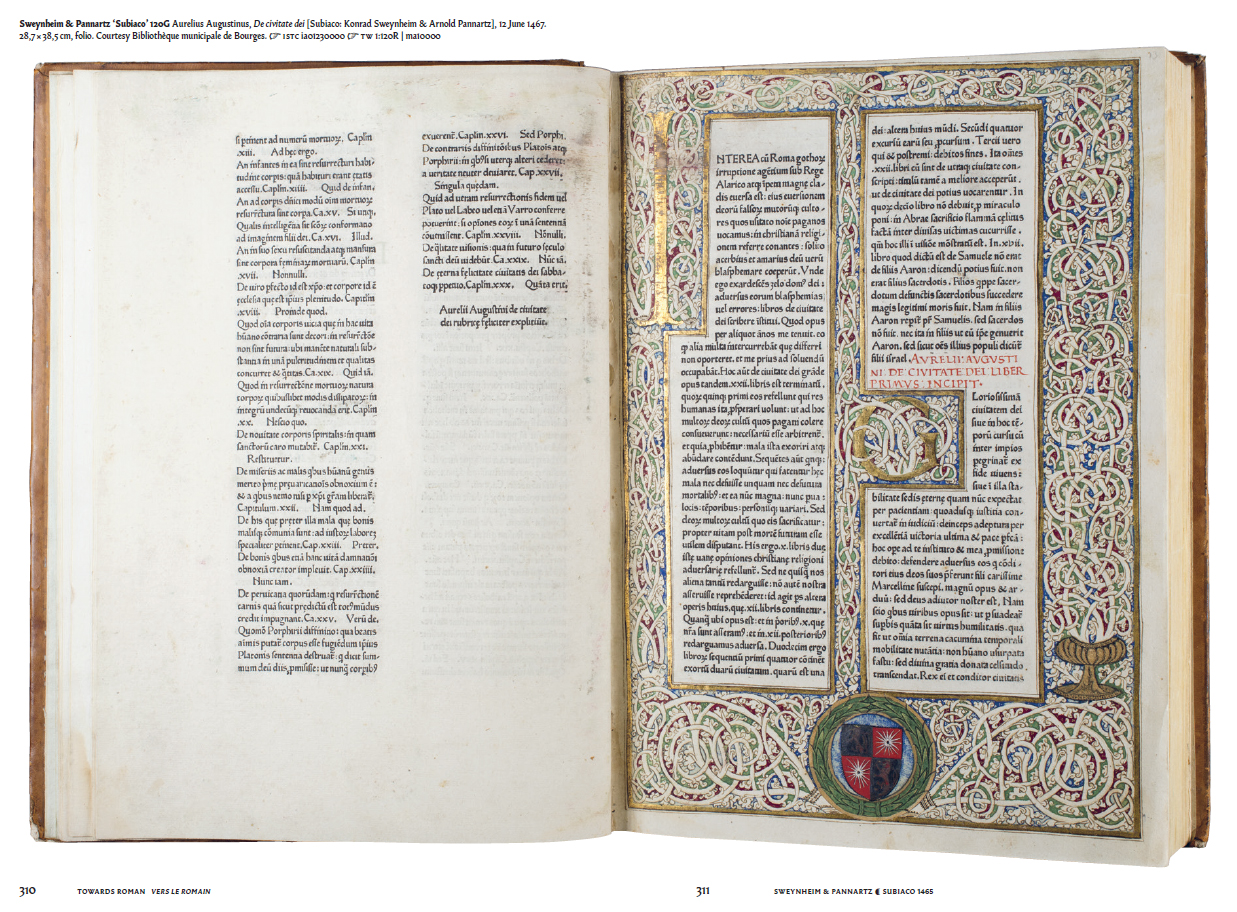 Sweynheim & Pannartz ‘Subiaco’ 120G Aurelius Augustinus, De civitate dei [Subiaco: Konrad Sweynheim & Arnold Pannartz], 12 June 1467.
28,7 × 38,5 cm, folio. Courtesy Bibliothèque municipale de Bourges. ☞ ISTC ia01230000 ☞ TW 1:120R | ma10000
ad numerū Caplm
.xiii. Ad hęc ergo.
An infantes in ea sint resurrecturi habi-
tudine corpis: quā habituri erant ętatis
accessu. Caplm.xiiii. Quid de infan.
An ad corpis dñici modū oim
sint corpa. Ca.xv. Si unqͥ.
Qualis
ad imaginem filii dei. Ca.xvi. Illud.
An in suo sexu resuscitanda atqꝫ mansura
sint corpora Caplm
.xvii. Nonnulli.
De uiro id est xpo: et corpore id ē
ecclesia que est ipius plenitudo. Capitlm
.xviii. Proinde quod.
Quod oīa corporis uitia que in hac uita
humano sint decori: in
non sint futura: ubi natural sub-
stantia in unā pulcritudinem et qualitas
Ca.xix. Quid iā.
Quod in natura
modis in
integrū undecūqꝫ reuocanda erit. Caplm
.xx. Nescio quo.
De nouitate corporis in quam
sanctorū caro Caplm.xxi.
Restituetur.
De miseriis ac malis qbus humanū genus
merito obnoxium ē:
& a qbus nemo nisi p xpi grām
Capitulum.xxii. Nam quod ad.
De his que preter illa mala que bonis
malisqꝫ cōmunia sunt: ad iustoꝝ laborē
specialiter Cap.xxiii. Preter.
De bonis qbus etiā hanc uitā damnationi
obnoxiā creator impleuit. Cap.xxiiii.
Nunc iam.
De peruicatia quorūdam: q resurrectionē
carnis quā sicut predictū est mūdus
credit impugnant. Ca.xxv. Verū de.
Quomō Porphirii diffinitio: qua beatis
corpus esse fugiēdum ipsius
Platonis sententia q dicit sum-
mum deū diis
exuerent. Caplm.xxvi. Sed Porphi.
De contrariis diffinitōibus Platonis atqꝫ
Porphirii: in uterqꝫ alteri
a ueritate neuter deuiaret. Cap.xxvii.
Singula quędam.
Quid ad ueram resurrectionis fidem uel
Plato uel Labeo uel etiā Varro conferre
potuerint: si opiones eoꝝ ī unā sententiā
Caplm.xxviii. Nonnulli.
De q̄litate uisionis: qua in futuro sęculo
sancti deū uidebūt. Ca.xxix. Nūc iā.
De ęterna felicitate ciuitatis dei sabba-
toqꝫ ppetuo. Caplm.xxx. Quāta erit.
Aurelii Augustini de ciuitate
dei rubricę feliciter expliciūt.
NTEREA cū Roma gothoꝝ
irruptione agētium sub Rege
Alarico atqꝫ ipetu magnę cla-
dis euersa est: eius euersionem
deorū falsoꝝ multorūqꝫ culto-
res quos usitato noīe paganos
uocamus: in christianā religi-
onem referre conantes: solito
acerbius et amarius deū uerū
blasphemare coeperūt. Vnde
ego exardescēs zelo domꝰ dei:
aduersus eorum blasphemias
uel errores: libros de ciuitate
dei scribere īstitui. Quod opus
per aliquot ānos me tenuit. eo
q alia multa intercurrebāt que differri
non oporteret. et me prius ad soluendū
occupabāt. Hoc aūt de ciuitate dei grāde
opus tandem.xxii.libris est terminatū.
quoꝝ quinqꝫ primi eos refellunt qui res
humanas ita ꝓsperari uolunt: ut ad hoc
multoꝝ deoꝝ cultū quos pagani colere
consueuerunt: necessariū esse arbitrent.
et quia ꝓhibent: mala ista exoriri atqꝫ
abūdare contēdunt. Sequētes aūt qnqꝫ:
aduersus eos loquūtur qui fatentur hęc
mala nec defuisse unquam nec defutura
mortalibꝰ: et ea nūc magna: nunc pua:
locis: tēporibus: personisqꝫ uariari. Sed
deoꝝ multoꝝ cultū quo eis sacrificatur:
propter uitam post mortē futuram esse
utilem disputant. His ergo.x.libris due
iste uane opiniones christianę religioni
aduersarię refellunt. Sed ne quisqͣ nos
aliena tantū redarguisse: nō autē nostra
asseruisse reprehēderet: id agit ps altera
operis huius. que.xii.libris continetur.
Quanqͣ ubi opus est: et in porībꝰ.x. que
nra sunt asseramꝰ: et in.xii.posterioribꝰ
redarguamus aduersa. Duodecim ergo
libroꝝ sequentiū primi quatuor cōtinēt
exortū duarū ciuitatum. quarū est una
dei: altera huius mūdi. Secūdi quatuor
excursū earū seu ꝓcursum. Tercii uero
qui & postremi: debitos fines. Ita oēs
.xxii.libri cū sint de utraqꝫ ciuitate con-
scripti: titulū tamē a meliore acceperūt.
ut de ciuitate dei potius uocarentur. In
quoꝝ decīo libro nō debuit ꝑ miraculo
poni: in Abrae sacrificio flammā celitus
factā inter diuisas uictimas cucurrisse.
qm hoc illi ī uisiōe mōstratū est. In.xvii.
libro quod dictū est de Samuele nō erat
de filiis Aaron: dicendū potius fuit. non
erat filius sacerdotis. Filios qppe sacer-
dotum defunctis sacerdotibus succedere
magis legitimi moris fuit. Nam in filiis
Aaron repit pr Samuelis. sed sacerdos
nō fuit. nec ita in filiis ut eū ipe genuerit
Aaron. sed sicut oēs illius populi dicūt
filii israel. AVRELII: AVGVSTI
NI. DE CIVITATE DEI. LIBER
PRIMVS INCIPIT.
Loriosissimā
ciuitatem dei
siue in hoc tē-
porū cursu cū
inter impios
pegrinat ex
fide uiuens:
siue ī illa sta-
bilitate sedis eternę quam nūc expectat
per pacientiam: quoadusqꝫ iusticia con-
uertat in iudiciū: deinceps adeptura per
excellētiā uictoria ultima & pace pfcā:
hoc ope ad te īstituto & mea ꝓmissione
debito: defendere aduersus eos q cōdi-
tori eius deos suos pferunt fili carissime
Marcelline suscepi. magnū opus & ar-
duū: sed deus adiutor noster est. Nam
scio qbus uiribus opus sit: ut psuadeat
supbis quāta sit uirtus humilitatis. qua
fit ut omīa terrena cacumina temporali
mobilitate nutātia: non hūano usurpata
fastu: sed diuina gratia donata celsitudo
transcendat. Rex eī et conditor ciuitatis
310 TOWARDS ROMAN VERS LE ROMAIN
311 SWEYNHEIM & PANNARTZ ☾ SUBIACO 1465